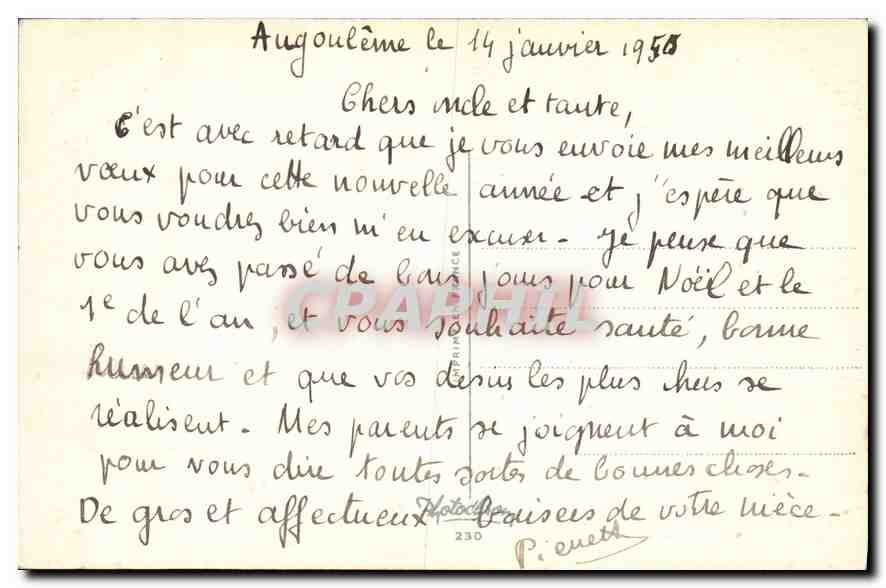 Augoulême le 14 janvier 195
Chers oncle et tante,
C'est avec retard que je vous envoie mes meilleurs
vœux pour cette nouvelle année et j'espère que
vous voudrez bien m'en excuser - Je pense que
vous avez passé de bons jours pour Noël et le
1e de l'an, et vous souhaite santé, bonne
humeur et que vos désirs les plus chers se
réalisent - Mes parents se joignent à moi
pour vous dire toutes sortes de bonnes choses -
De gros et affectueux baisers de votre nièce -
IMPRIMÉ EN FRANCE
CPAPHIL
230